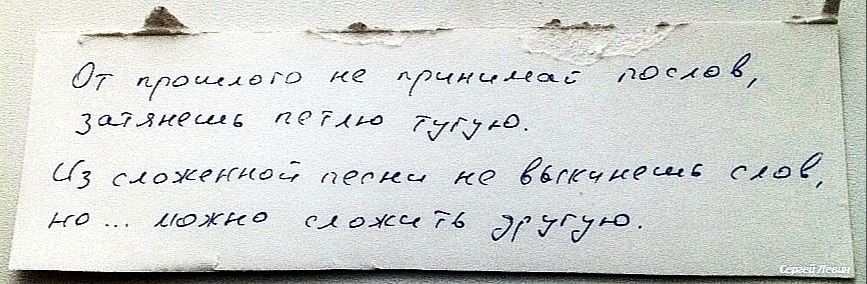 От прошлого не принимай послов,
затянешь петлю тугую.
Из сложенной песни не выкинешь слов,
но... можно сложить другую.
Сергей Левин